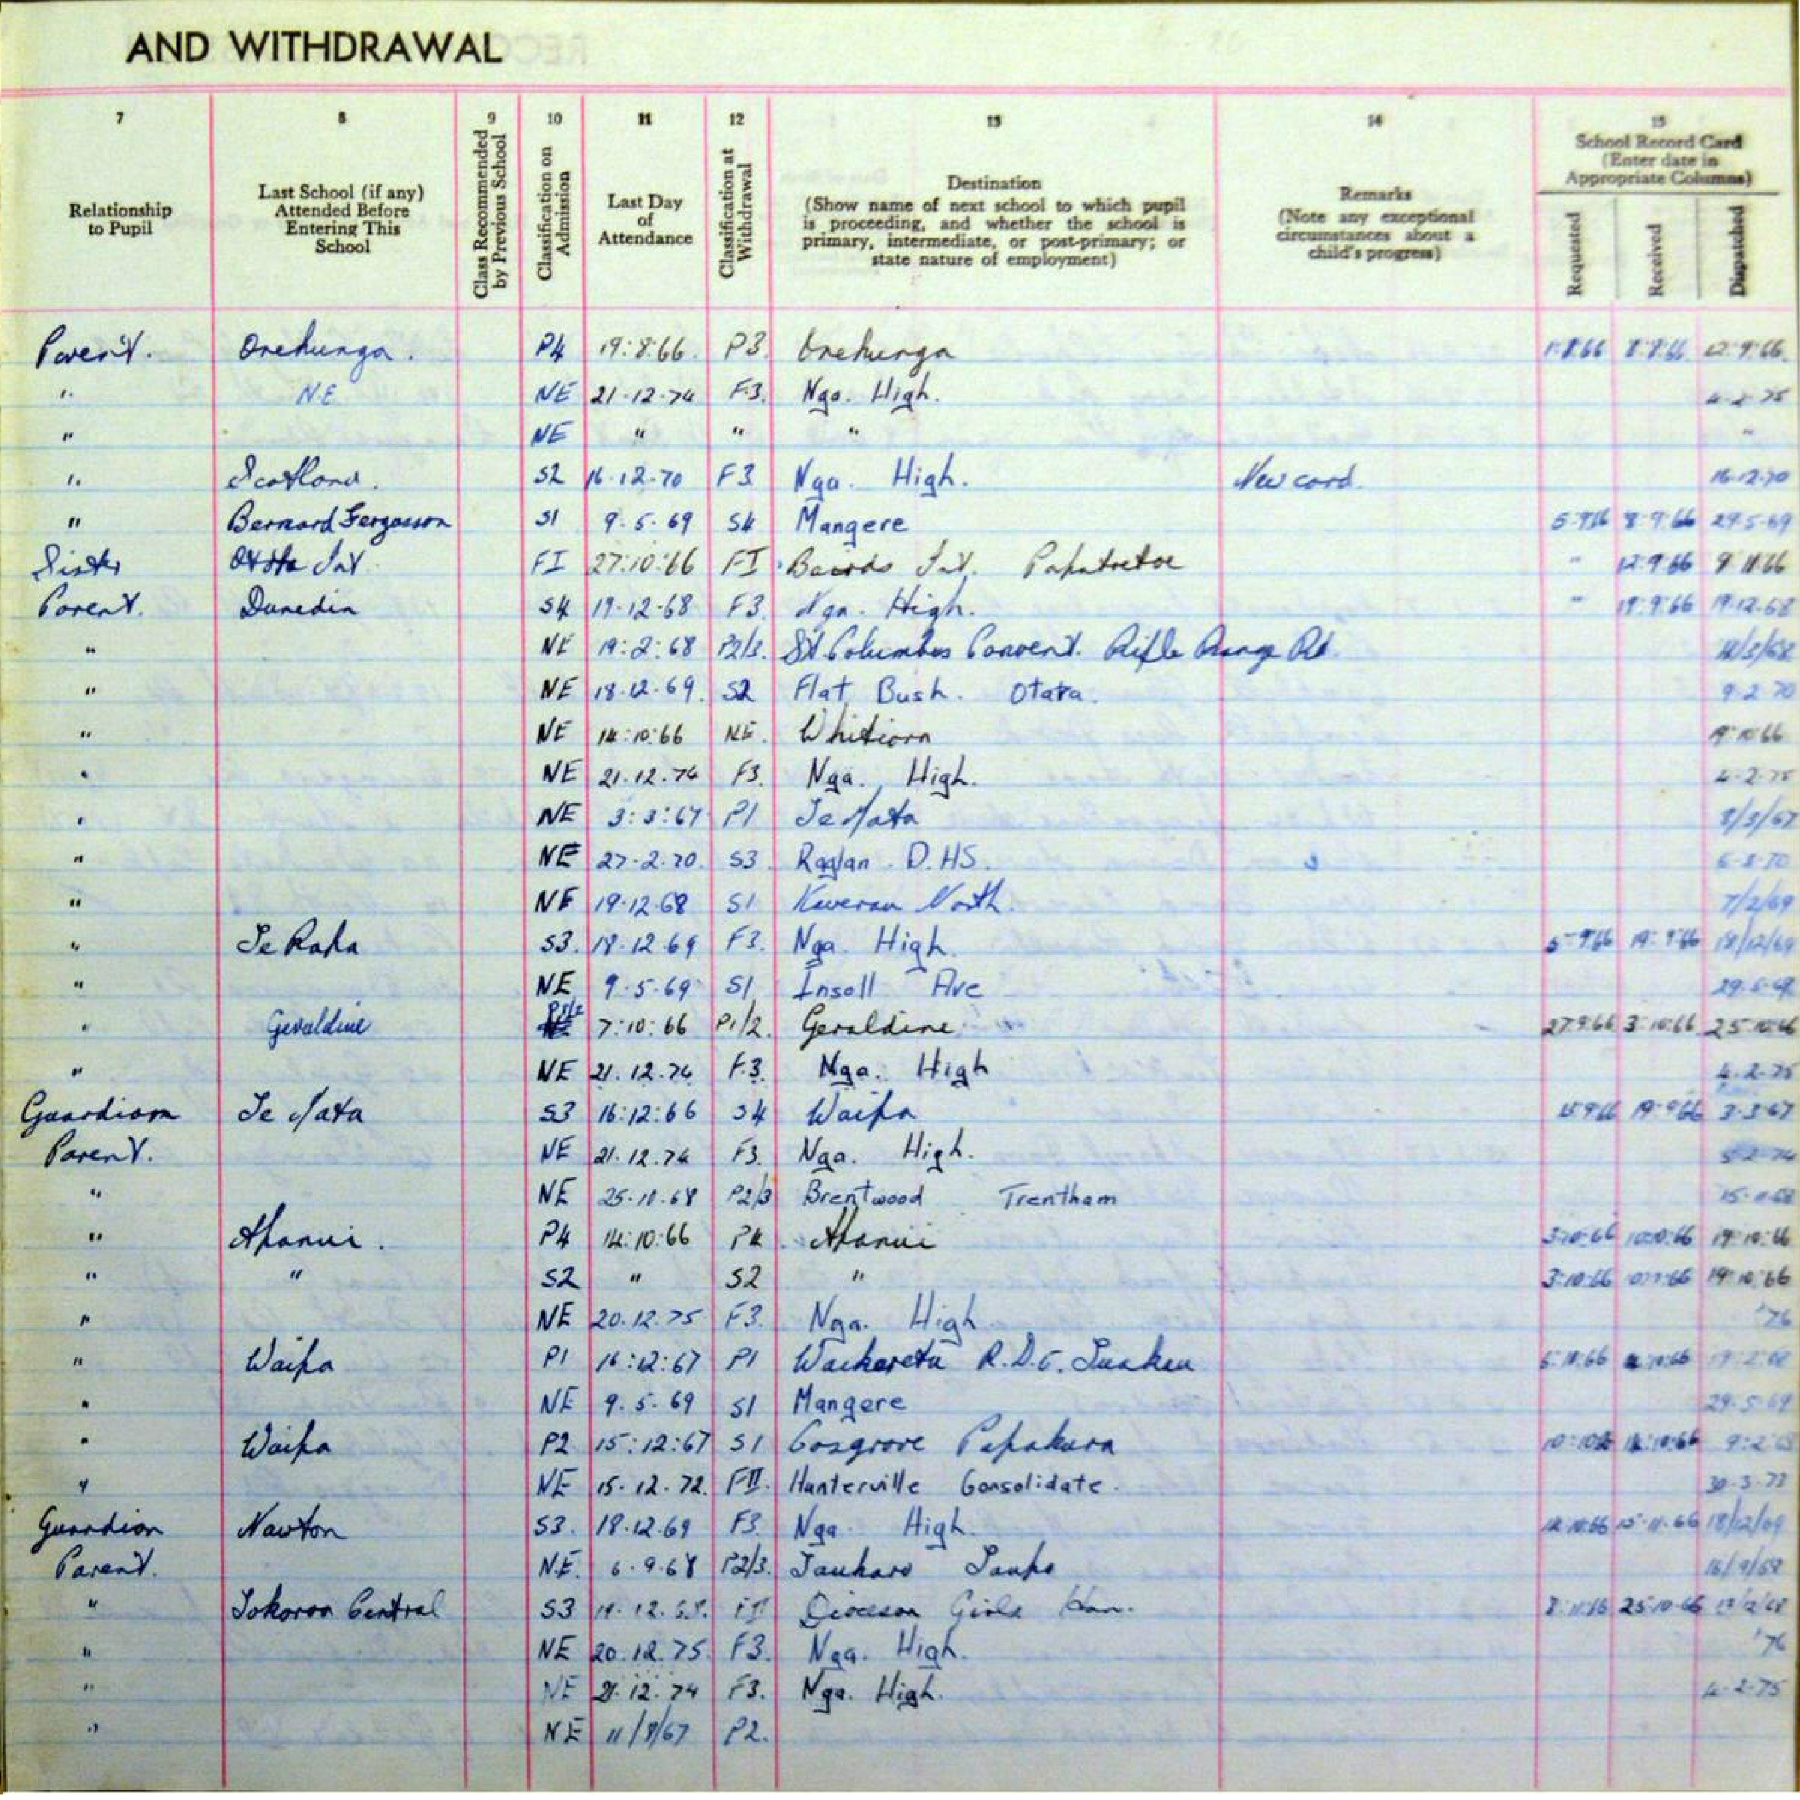 AND WITHDRAWAL
7 8 9 10 11 12 13 14 15
Relationship to Pupil
Last School (if any) Attended Before Entering This School
Class Recommended by Previous School
Classification on Admission
Last Day of Attendance
Classification at Withdrawal
Destination
(Show name of next school to which pupil is proceeding, and whether the school is primary, intermediate, or post-primary; or state nature of employment)
Remarks
(Note any exceptional circumstances about a child's progress)
School Record Card
(Enter date in Appropriate Columns)
Requested Received Dispatched
Parent. Onehunga. P4 19:8:66. P3. Onehunga 1:8:66 8:8:66 12:9:66.
" N.E. NE 21-12-74 F3. Nga. High. 4-2-75
" NE " " " "
" Scotland. S2 16-12-70 F3 Nga. High. New card. 16-12-70
" Bernard Fergusson S1 9-5-69 S4 Mangere 8:9:66 29-5-69
Sister Int. FI 27:10:66 FI Bairds Int. Papatoetoe " 12:9:66 9:11:66
Parent. Dunedin S4 19-12-68 F3. Nga. High. " 19:9:66 19-12-68
" NE 19:2:68 P2/3. St Columbas Convent. Rifle Range Rd.
" NE 18-12-69. S2 Flat Bush. Otara. 9-2-70
" NE 14:10:66 NE. Whitiora 19:10:66
" NE 21.12.74 F3. Nga. High. 4-2-75
" NE 3:3:67 P1 Te Mata 8/3/67
" NE 27-2-70. S3 Raglan D.HS. 6-3-70
" NE 19-12-68 S1 Kawerau North. 7/2/69
" Te Rapa S3. 18-12-69 F3. Nga. High. 5-9:66 19:9:66 18/12/69
" NE 9-5-69 S1 Insoll Ave 29-5-69
" Geraldine P1/2 7:10:66 P1/2. Geraldine 27:9:66 3:10:66 25:10:66
" NE 21.12.74 F.3. Nga. High 4-2-75
Guardian Te Mata S3 16:12:66 S4 Waipa 15:9:66 19:9:66 3-3-67
Parent. NE 21.12.74 F3. Nga. High.
" NE 25-11-68 P2/3 Brentwood Trentham
" Ahanui. P4 14:10:66 P4. Ahanui 3:10:66 10:10:66 19:10:66
" " S2 " S2 " 3:10:66 19:10:66
" NE 20.12.75 F3. Nga. High '76
" Waipa P1 16:12:67 P1 Waikaretu R.D.5. Tuakau
" NE 9-5-69 S1 Mangere 29-5-69
" Waipa P2 15:12:67 S1 Cosgrove Papakura
" NE 15-12-72. FII. Hunterville Consolidate.
Guardian Nawton S3. 18-12-69 F3. Nga. High. 15-11-66 18/12/69
Parent. N.E. 6-9-68 P2/3. Tauhara Taupo
" Tokoroa Central S3 FII Diocesan Girls Ham. 25-10-66
" NE 20.12.75 F3. Nga. High. '76
" NE 21.12.74 F3. Nga. High. 4-2-75
" NE 11/8/67 P2.